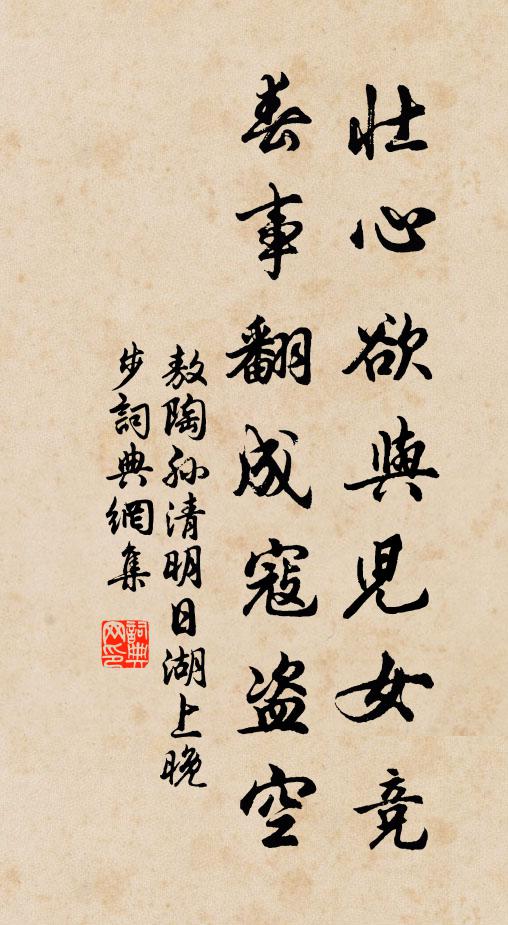 壯心欲與兒女競
春事翻成寇盜空
敖陶孫清明日湖上晚
步詞典網集
詞典網印